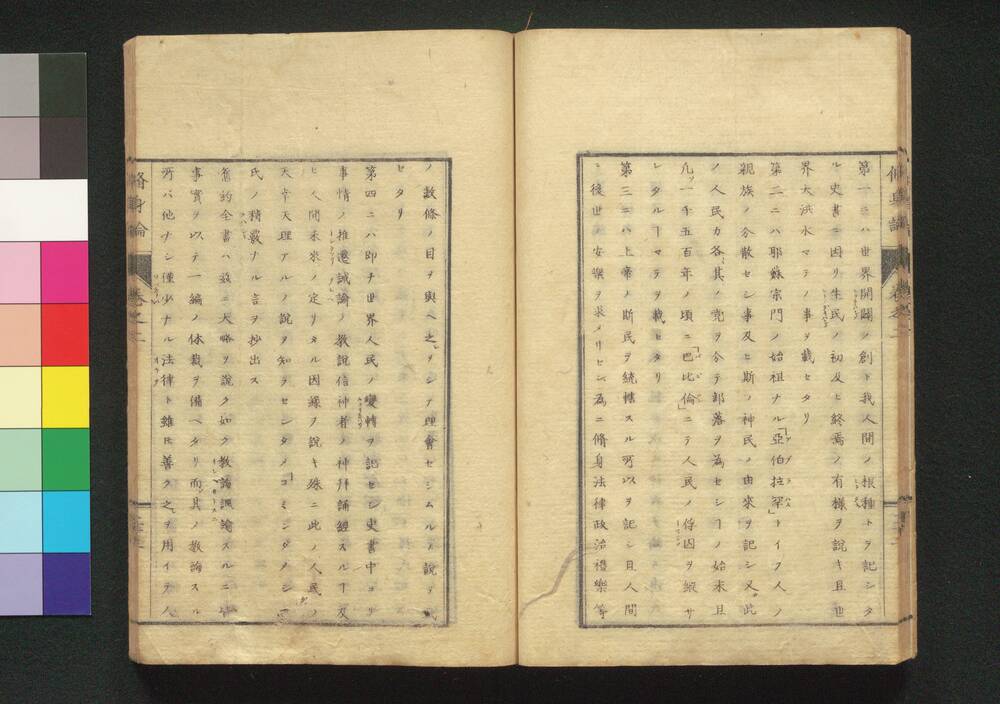 第一ニハ世界開闢ノ創ト我人間ノ根種トヲ記シタ
ル史書ニ因リ生民ノ初及ヒ終焉ノ有様ヲ説キ且世
界大洪水マテノ事ヲ載セタリ
第二ニハ耶蘇宗門ノ始祖ナル「亞伯拉罕」トイフ人ノ
親族ノ分散セシ事及ヒ斯ノ神民ノ由來ヲ記シ又此
ノ人民カ各其ノ党ヲ分テ部落ヲ為セシヿノ始末且
凡一千五百年ノ頃ニ「巴比倫」ニテ人民ノ俘囚ヲ縦サ
レタルヿマテヲ載セタリ
第三ニハ上帝ノ斯民ヲ統轄スル所以ヲ記シ且人間
ニ後世ノ安樂ヲ求メリセシ為ニ脩身法律政治禮樂等
ノ數條ノ目ヲ與ヘ之ヲシテ理會セシムルノ説ヲ載
セタリ
第四ニハ即チ世界人民ノ變轉ヲ記セシ史書中ヨリ
事情ノ推遷誡諭ノ教説信神者ノ神拜誦經スルヿ又
ヒ人間未來ノ定リタル因縁ヲ説キ殊ニ此ノ人民ノ
天幸天理アルノ説ヲ知ラセンタメ
氏ノ精覈ナル言ヲ抄出ス
舊約全書ハ茲ニ大略ヲ説ク如ク教諭諷諭スルニ皆
事實ヲ以テ一編ノ体裁ヲ備ヘタリ而其ノ教諭スル
所ハ他ナシ僅少ナル法律ト雖𪜈善ク之ヲ用イテ人
脩身論 卷之二